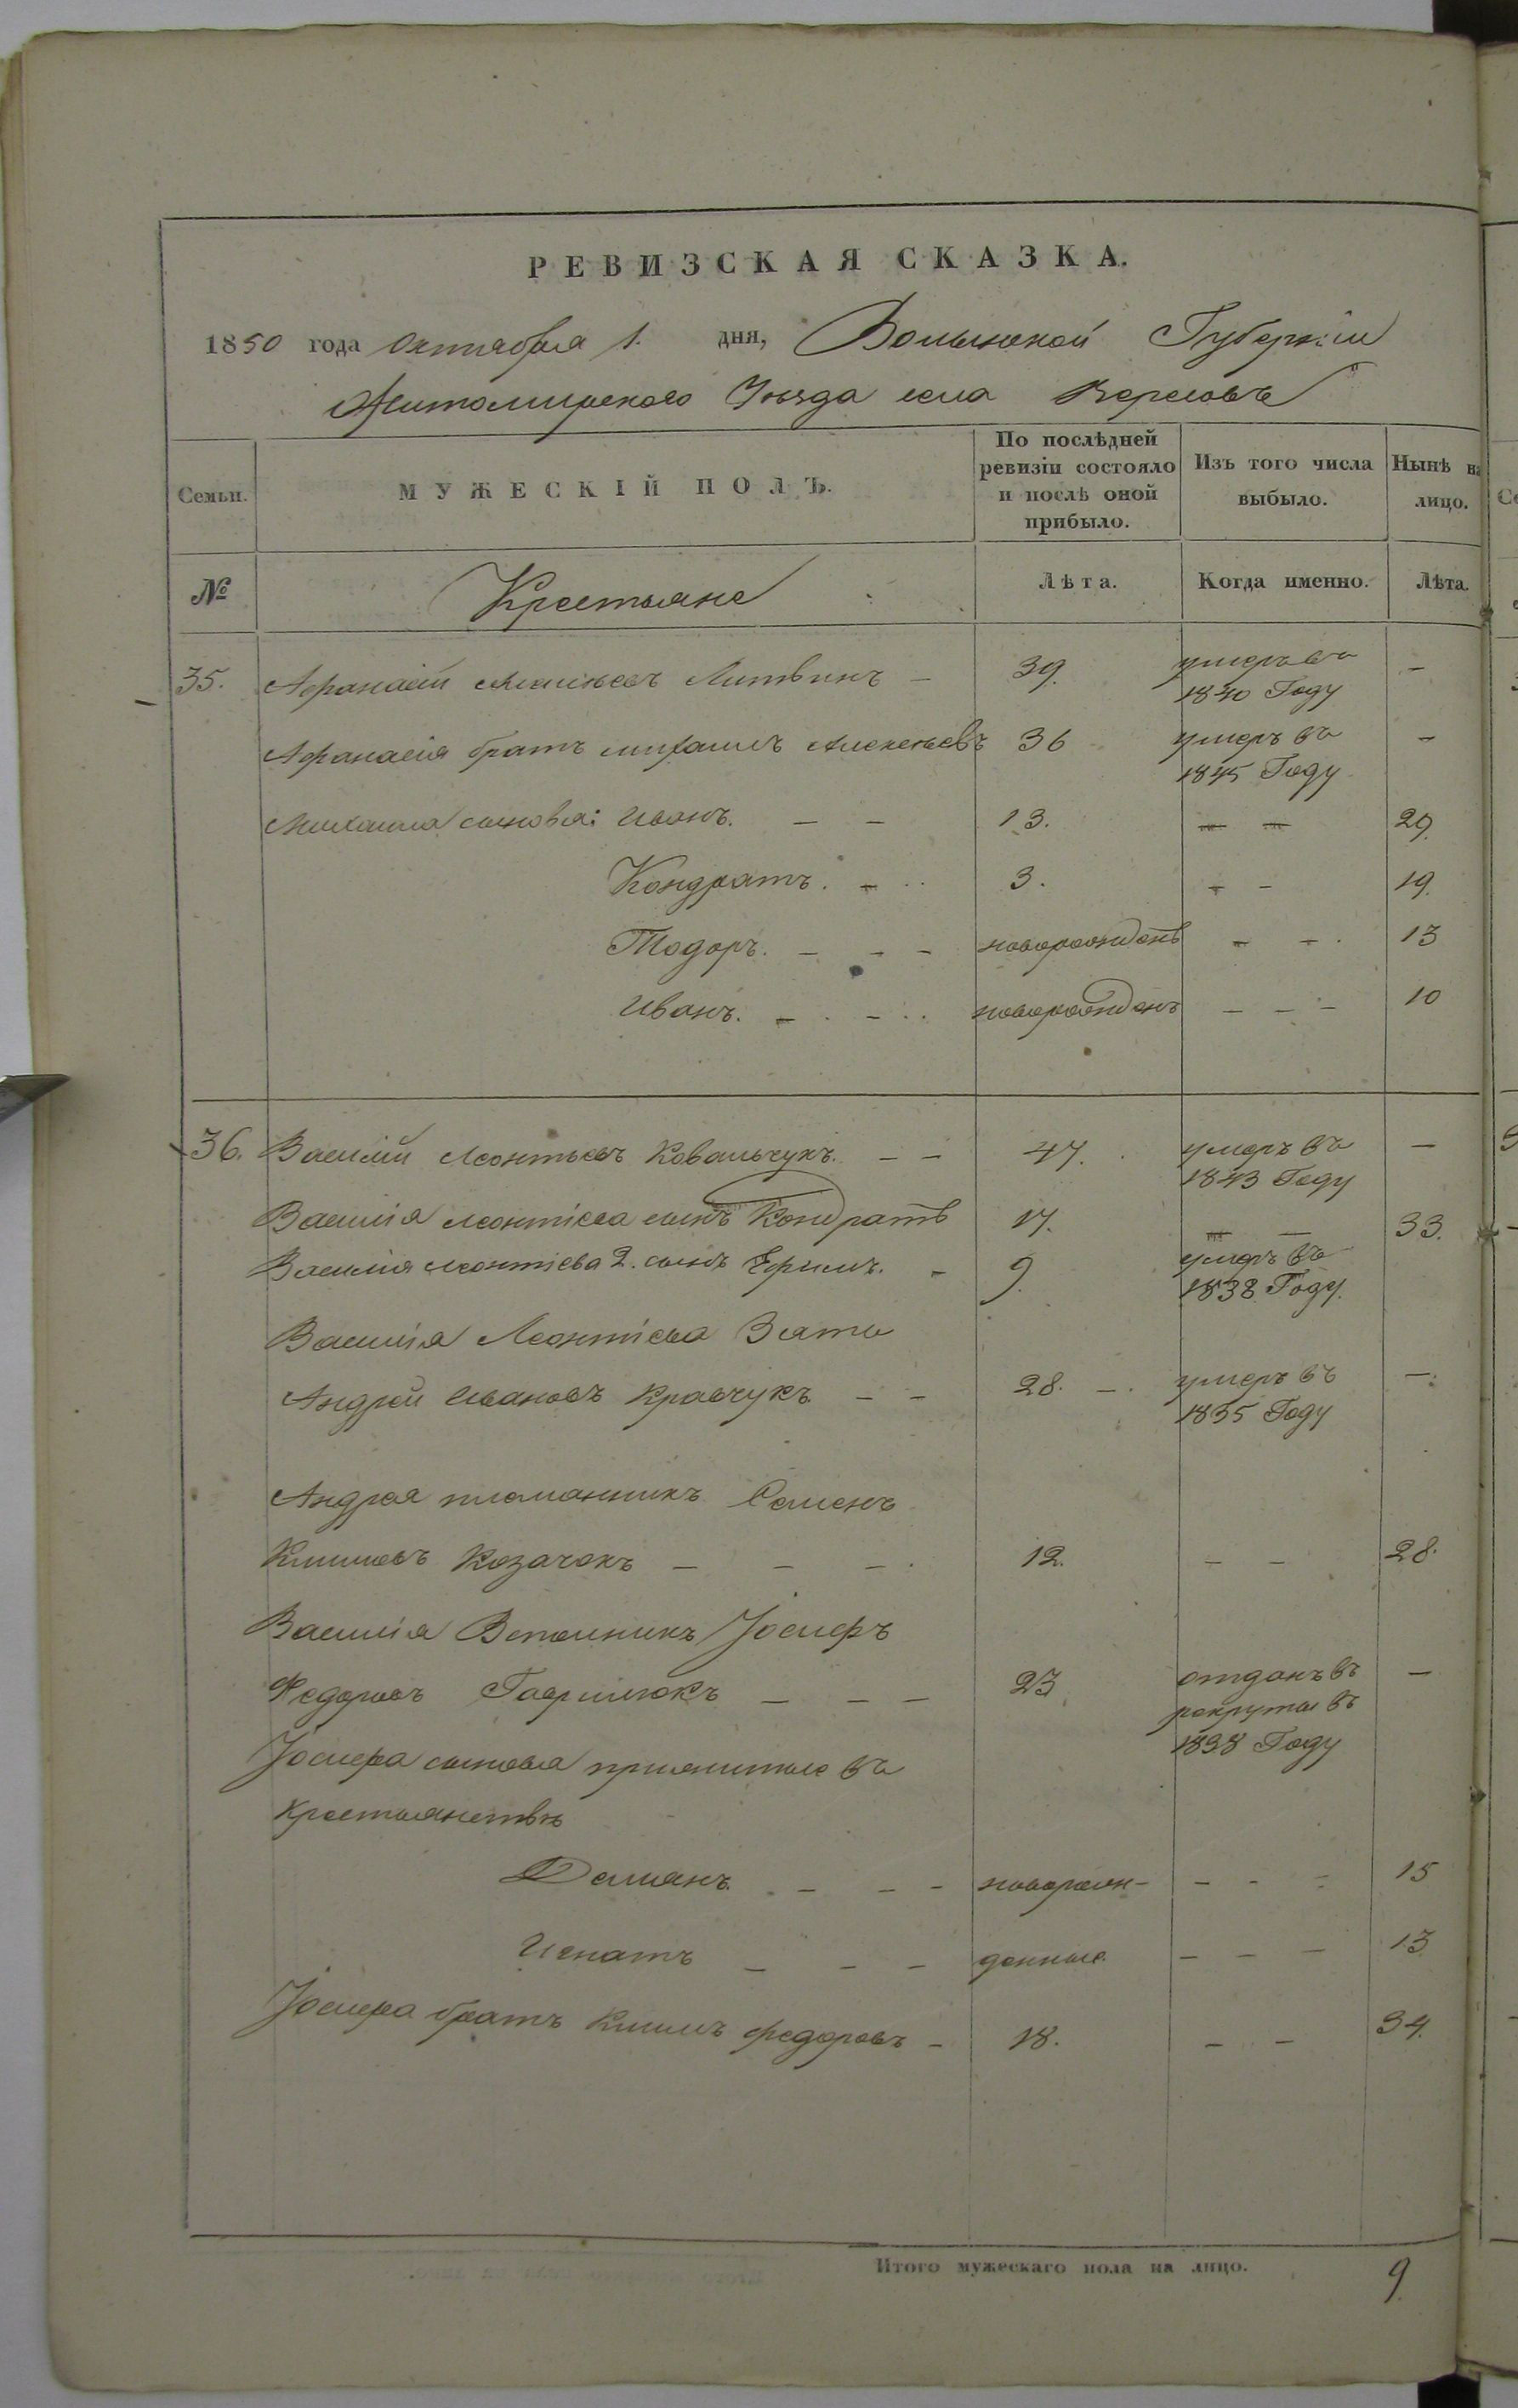 РЕВИЗСКАЯ СКАЗКА.
1850 года Октября 1. дня, Волынской Губерніи
Житомирского Уезда села Вересовъ
Семьи. МУЖЕСКІЙ ПОЛЪ. По послѣдней ревизіи состояло и послѣ оной прибыло. Изъ того числа выбыло. Нынѣ на лицо.
№ Крестьяне Лѣта. Когда именно. Лѣта.
35. Афанасій Алексѣевъ Литвинъ — 39. умеръ въ 1840 Году —
Афанасія братъ михаилъ Алексѣевъ 36 умеръ въ 1845 Году —
Михаила сыновья: Иванъ. — — 13. — — 29.
Кондратъ. — 3. — — 19.
Тодоръ. — — — новорожденъ — — 13
Иванъ. — — новорожденъ — — — 10
36. Василій Леонтьевъ Ковальчукъ. — — 47. умеръ въ 1843 Году —
Василія Леонтіева сынъ Кондратъ 17. — — 33.
Василія Леонтіева 2. сынъ Ефимъ. — 9. умеръ въ 1838 Году.
Василія Леонтіева Зять
Андрей Ивановъ Кравчукъ — — 28. — умеръ въ 1835 Году —
Андрея племянникъ Семенъ
Климовъ Козачокъ — — — 12. — — 28.
Василія Іосифъ
Федоровъ Гаврилюкъ — — — 23 отданъ въ рекруты въ 1838 Году —
Іосифа сыновья прижитые въ
крестьянствѣ
Демянъ. — — — новорож- — — — 15
Игнатъ — — — денные — — — 13
Іосифа братъ Климъ федоровъ — 18. — — 34.
Итого мужескаго пола на лицо. 9